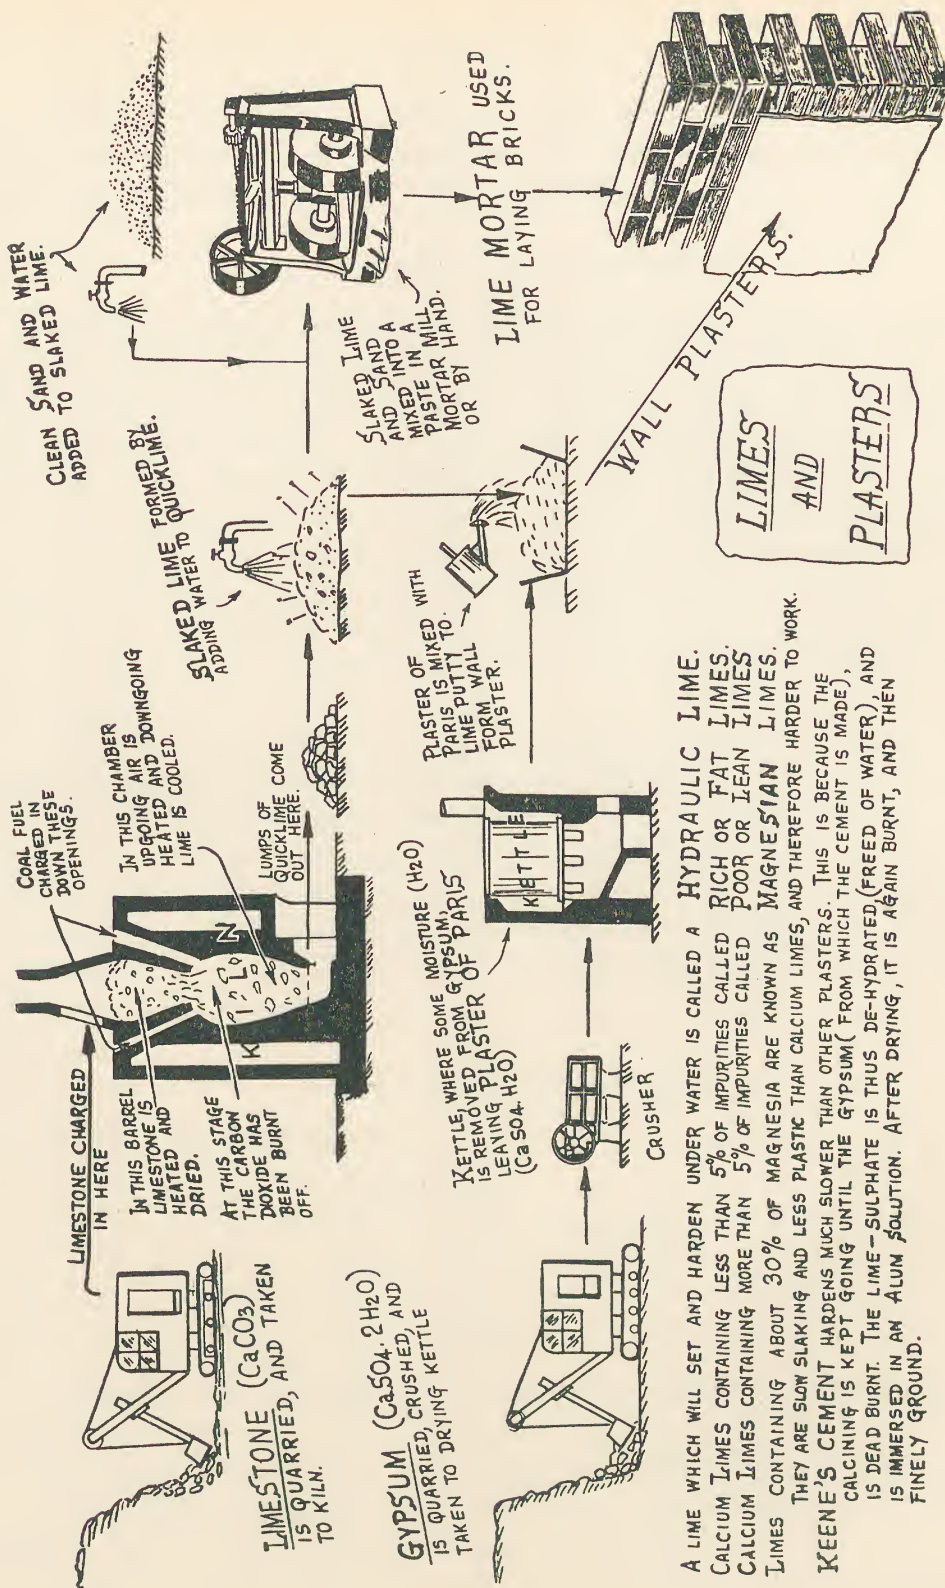 LIMESTONE CHARGED
IN HERE
COAL FUEL
CHARGED IN
DOWN THESE
OPENINGS.
IN THIS BARREL
LIMESTONE IS
HEATED AND
DRIED.
AT THIS STAGE
THE CARBON
DIOXIDE HAS
BEEN BURNT
OFF.
KILN
IN THIS CHAMBER
UPGOING AIR IS
HEATED AND DOWNGOING
LIME IS COOLED.
LUMPS OF
QUICKLIME COME
OUT HERE.
SLAKED LIME FORMED BY
ADDING WATER TO QUICKLIME.
CLEAN SAND AND WATER
ADDED TO SLAKED LIME.
SLAKED LIME
AND SAND
MIXED INTO A
PASTE IN A
MORTAR MILL
OR BY HAND.
LIME MORTAR USED
FOR LAYING BRICKS.
LIMESTONE (CaCO3)
IS QUARRIED, AND TAKEN
TO KILN.
GYPSUM (CaSO4.2H2O)
IS QUARRIED, CRUSHED, AND
TAKEN TO DRYING KETTLE
CRUSHER
KETTLE, WHERE SOME MOISTURE (H2O)
IS REMOVED FROM GYPSUM,
LEAVING PLASTER OF PARIS
(CaSO4.H2O)
KETTLE
PLASTER OF
PARIS IS MIXED WITH
LIME PUTTY TO
FORM WALL
PLASTER.
WALL PLASTERS.
LIMES
AND
PLASTERS
A LIME WHICH WILL SET AND HARDEN UNDER WATER IS CALLED A HYDRAULIC LIME.
CALCIUM LIMES CONTAINING LESS THAN 5% OF IMPURITIES CALLED RICH OR FAT LIMES.
CALCIUM LIMES CONTAINING MORE THAN 5% OF IMPURITIES CALLED POOR OR LEAN LIMES
LIMES CONTAINING ABOUT 30% OF MAGNESIA ARE KNOWN AS MAGNESIAN LIMES.
THEY ARE SLOW SLAKING AND LESS PLASTIC THAN CALCIUM LIMES, AND THEREFORE HARDER TO WORK.
KEENE'S CEMENT HARDENS MUCH SLOWER THAN OTHER PLASTERS. THIS IS BECAUSE THE
CALCINING IS KEPT GOING UNTIL THE GYPSUM (FROM WHICH THE CEMENT IS MADE),
IS DEAD BURNT. THE LIME-SULPHATE IS THUS DE-HYDRATED (FREED OF WATER), AND
IS IMMERSED IN AN ALUM SOLUTION. AFTER DRYING, IT IS AGAIN BURNT, AND THEN
FINELY GROUND.